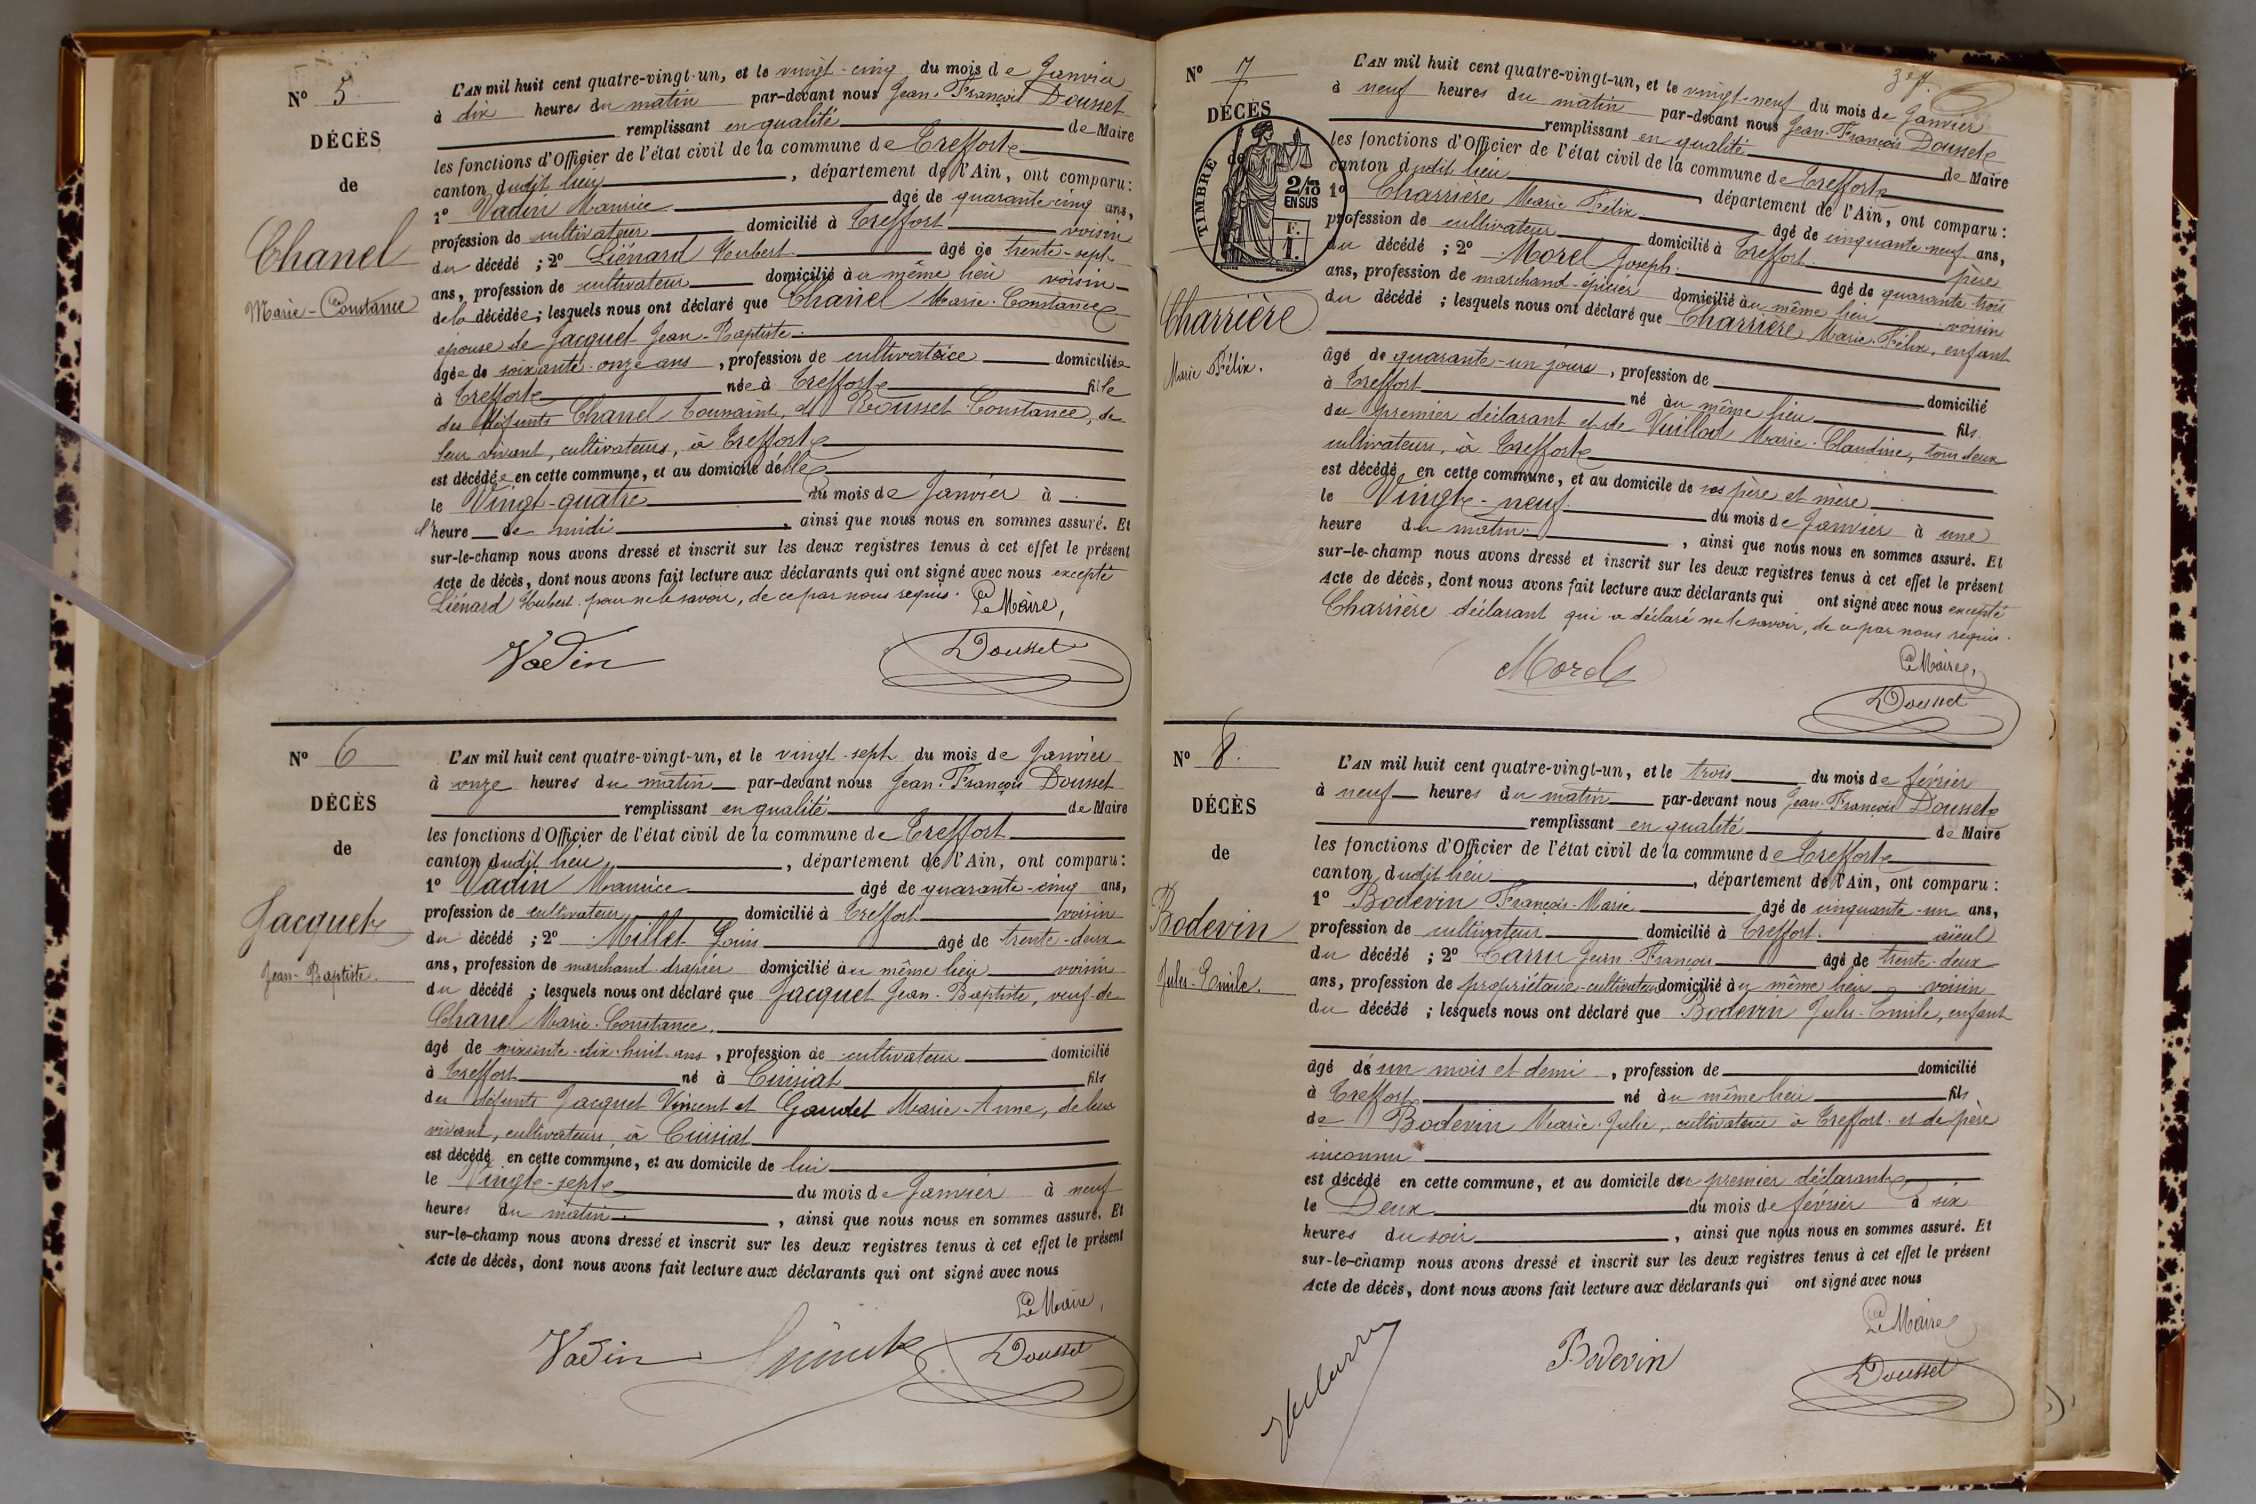 N° 5
DÉCÈS
de
Chanel
Marie-Constance
L'AN mil huit cent quatre-vingt-un, et le vingt-cinq du mois de Janvier
à dix heures du matin par-devant nous Jean-François Dousset
remplissant en qualité de Maire
les fonctions d'Officier de l'état civil de la commune de Treffort
canton dudit lieu, département de l'Ain, ont comparu :
1° Vadin Maurice âgé de quarante-cinq ans,
profession de cultivateur domicilié à Treffort voisin
du décédé ; 2° Liénard Hubert âgé de trente-sept
ans, profession de cultivateur domicilié au même lieu voisin
de la décédée ; lesquels nous ont déclaré que Chanel Marie-Constance
épouse de Jacquet Jean-Baptiste
âgée de soixante-onze ans, profession de cultivatrice domiciliée
à Treffort née à Treffort fille
des défunts Chanel Toussaint, et Rousset Constance, de
leur vivant, cultivateurs, à Treffort
est décédée en cette commune, et au domicile d'elle
le Vingt-quatre du mois de Janvier à
l'heure de midi, ainsi que nous nous en sommes assuré. Et
sur-le-champ nous avons dressé et inscrit sur les deux registres tenus à cet effet le présent
Acte de décès, dont nous avons fait lecture aux déclarants qui ont signé avec nous excepté
Liénard Hubert pour ne le savoir, de ce par nous requis. Le Maire,
Vadin Dousset
N° 6
DÉCÈS
de
Jacquet
Jean-Baptiste
L'AN mil huit cent quatre-vingt-un, et le vingt-sept du mois de Janvier
à onze heures du matin par-devant nous Jean-François Dousset
remplissant en qualité de Maire
les fonctions d'Officier de l'état civil de la commune de Treffort
canton dudit lieu, département de l'Ain, ont comparu :
1° Vadin Maurice âgé de quarante-cinq ans,
profession de cultivateur domicilié à Treffort voisin
du décédé ; 2° Millet Louis âgé de trente-deux
ans, profession de marchand-drapier domicilié au même lieu voisin
du décédé ; lesquels nous ont déclaré que Jacquet Jean-Baptiste, veuf de
Chanel Marie-Constance,
âgé de soixante-dix-huit ans, profession de cultivateur domicilié
à Treffort né à Cuisiat fils
des défunts Jacquet Vincent et Gaudet Marie-Anne, de leur
vivant, cultivateurs, à Cuisiat
est décédé en cette commune, et au domicile de lui
le Vingt-sept du mois de Janvier à neuf
heures du matin, ainsi que nous nous en sommes assuré. Et
sur-le-champ nous avons dressé et inscrit sur les deux registres tenus à cet effet le présent
Acte de décès, dont nous avons fait lecture aux déclarants qui ont signé avec nous
Le Maire,
Vadin Dousset
N° 7
DÉCÈS
de
TIMBRE
2/10
EN SUS
F.
1.
Charrière
Marie Félix.
L'AN mil huit cent quatre-vingt-un, et le vingt-neuf du mois de Janvier
à neuf heures du matin par-devant nous Jean-François Dousset
remplissant en qualité de Maire
les fonctions d'Officier de l'état civil de la commune de Treffort
canton dudit lieu, département de l'Ain, ont comparu :
1° Charrière Marie Félix âgé de cinquante-neuf ans,
profession de cultivateur domicilié à Treffort père
du décédé ; 2° Morel Joseph âgé de quarante-trois
ans, profession de marchand-épicier domicilié au même lieu voisin
du décédé ; lesquels nous ont déclaré que Charrière Marie-Félix, enfant
âgé de quarante-un jours, profession de domicilié
à Treffort né au même lieu fils
du premier déclarant et de Vuillod Marie-Claudine, tous deux
cultivateurs, à Treffort
est décédé en cette commune, et au domicile de ses père et mère
le Vingt-neuf du mois de Janvier à une
heure du matin, ainsi que nous nous en sommes assuré. Et
sur-le-champ nous avons dressé et inscrit sur les deux registres tenus à cet effet le présent
Acte de décès, dont nous avons fait lecture aux déclarants qui ont signé avec nous excepté
Charrière déclarant qui a déclaré ne le savoir, de ce par nous requis.
Le Maire,
Morel Dousset
N° 8.
DÉCÈS
de
Bodevin
Jules-Emile.
L'AN mil huit cent quatre-vingt-un, et le trois du mois de février
à neuf heures du matin par-devant nous Jean-François Dousset
remplissant en qualité de Maire
les fonctions d'Officier de l'état civil de la commune de Treffort
canton dudit lieu, département de l'Ain, ont comparu :
1° Bodevin François-Marie âgé de cinquante-un ans,
profession de cultivateur domicilié à Treffort aïeul
du décédé ; 2° Carru Jean-François âgé de trente-deux
ans, profession de propriétaire-cultivateur domicilié au même lieu voisin
du décédé ; lesquels nous ont déclaré que Bodevin Jules-Emile, enfant
âgé d'un mois et demi, profession de domicilié
à Treffort né au même lieu fils
de Bodevin Marie-Julie, cultivatrice à Treffort et de père
inconnu
est décédé en cette commune, et au domicile du premier déclarant
le Deux du mois de février à six
heures du soir, ainsi que nous nous en sommes assuré. Et
sur-le-champ nous avons dressé et inscrit sur les deux registres tenus à cet effet le présent
Acte de décès, dont nous avons fait lecture aux déclarants qui ont signé avec nous
Le Maire,
Bodevin Dousset